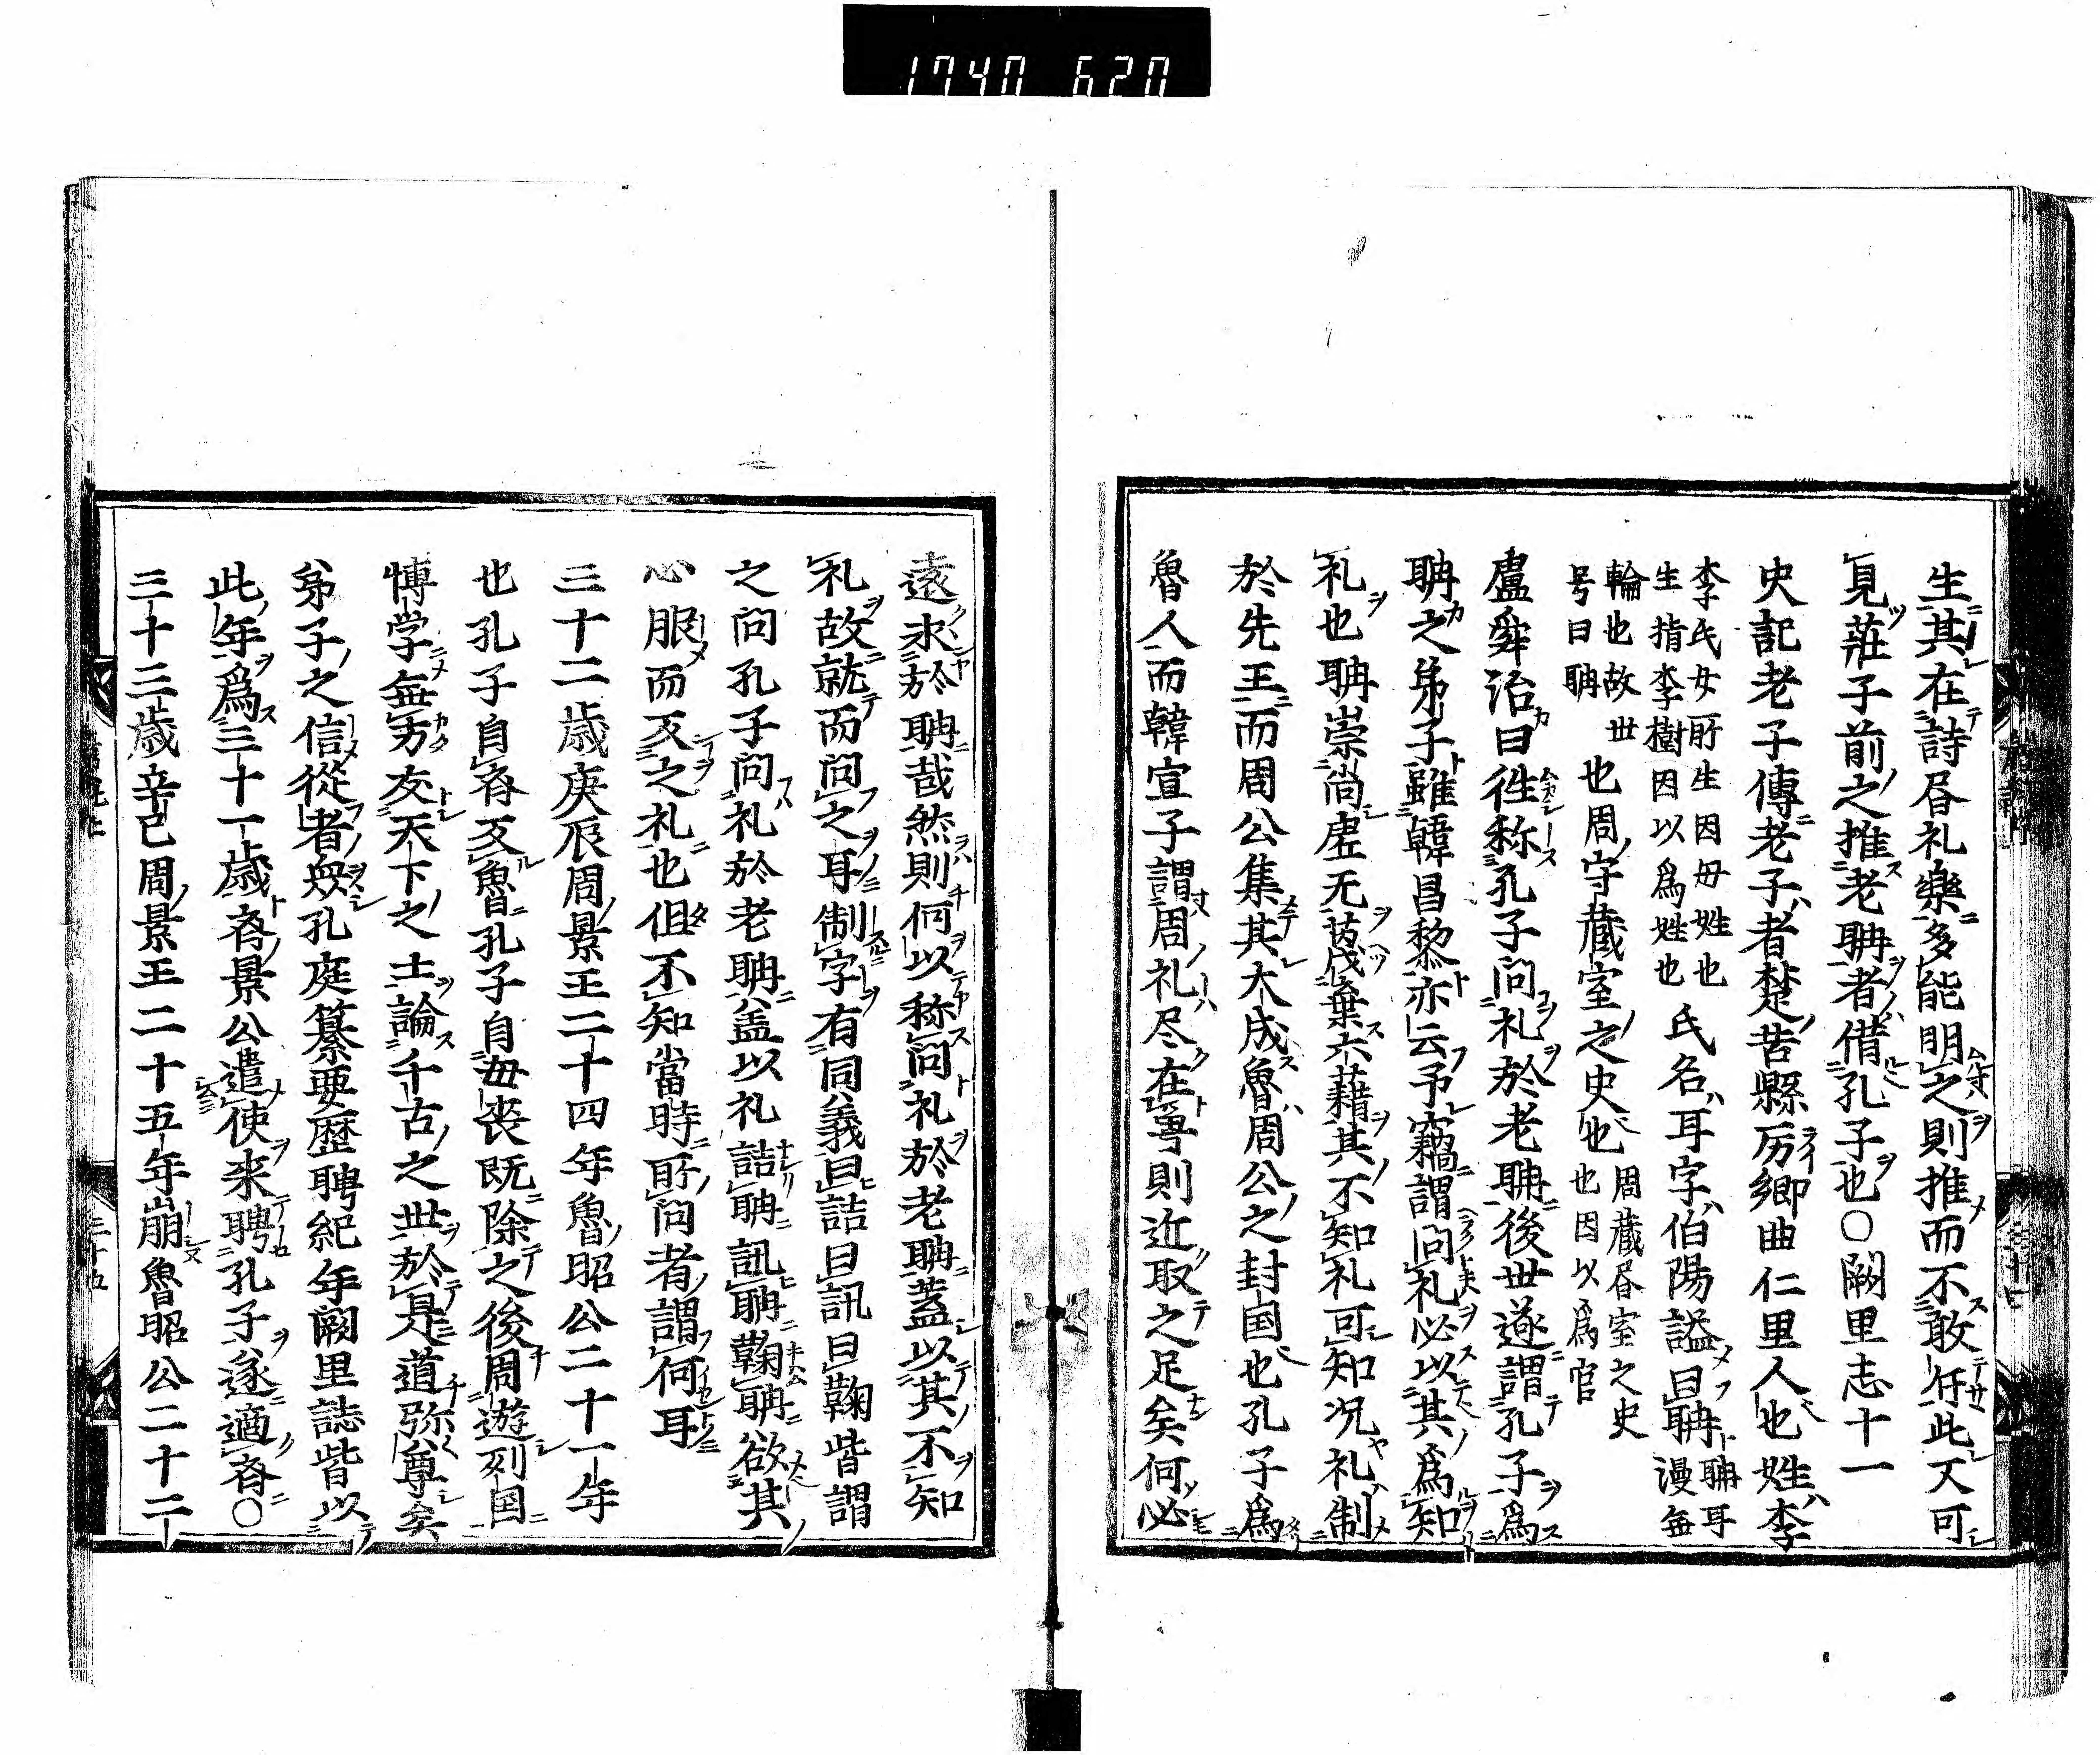 1740 620
生其在詩㫺礼樂多能明之則推而不敢任此又可
見莊子前之推老聃者借孔子也〇闕里志十一
史記老子傳老子者楚苦縣厉郷曲仁里人也姓李
李氏女所生因母姓也
生指李樹因以爲姓也
氏名耳字伯陽謚曰聃
聃耳
漫無
輪也故世
号曰聃
也周守蔵室之史也
周蔵㫺室之史
也因以爲官
盧舜治曰徃称孔子問礼於老聃後世遂謂孔子爲
聃之弟子雖韓昌黎亦云予竊謂問礼必以其爲知
礼也聃崇尚虚无茂棄六藉其不知礼可知况礼制
於先王而周公集其大成魯周公之封国也孔子爲
魯人而韓宣子謂周礼尽在魯則近取之足矣何必
遠求於聃哉然則何以称問礼於老聃蓋以其不知
礼故就而問之耳制字有同義曰詰曰訊曰鞠皆謂
之問孔子問礼於老聃盖以礼詰聃訊聃鞠聃欲其
心服而反之礼也但不知當時所問者謂何耳
三十二歳庚辰周景王二十四年魯昭公二十一年
也孔子自斉反魯孔子自母喪既除之後周遊列国
博学無方友天下之士論千古之世於是道弥尊矣
弟子之信從者衆孔庭纂要歴聘紀年闕里誌皆以
此年爲三十一歳斉景公遣使来聘孔子遂適斉〇
三十三歳辛巳周景王二十五年崩魯昭公二十二